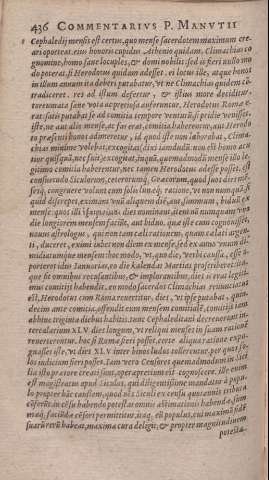 436 COMMENTARIVS P. MANVTII
Cephaledij mensis est certus, quo mense sacerdotem maximum cre-
ari oporteat. eius honoris cupidus Artheniò quidam, Climachias co
gnomine, homo sane locuples, & domi nobilis. sed is fieri nullo mo
do poterat, si Herodotus quidam adesset. ei locus ille, atque honor
in illum annum ita deberi putabatur, vt ne Climachias quidem cō
tradiceret. res ad istum defertur, & istius more deciditur.
toreumata sane nota ac preciosa auferuntur. Herodotus Romæ e-
rat. satis putabat se ad comitia tempore venturū, si pridie venisset.
iste, ne aut alio mense, ac fas erat, comitia haberentur, aut Herodo
to præsenti honos adimeretur, id quod iste non laborabat, Clima-
chias minime volebat, excogitat (dixi iamdudū, non est homo acu
tior quisquā, nec fuit) excogitat, inquā, quemadmodū mense illo le-
gitimo comitia haberentur, nec tamen Herodotus adesse posset. est
consuetudo Siculorum, ceterorumq́; Græcorum, quod suos dies mē
sesq́; congruere volunt cum solis lunæq́; ratione, vt non numquā, si
quid discrepet, eximant vnū aliquem diē, aut summum, biduū ex
mense: quos illi
die longiorem mensem faciūt, aut biduo. quæ iste cum cognosset,
nouus astrologus, qui non tam cæli rationem, quam cælati argen-
ti, duceret, eximi iubet non diem ex mense, sed ex anno vnum di-
midiatumque mensem: hoc modo, vt, quo die, verbi caussa, esse o-
porteret idus Ianuarias, eo die kalendas Martias proscriberet: ita-
que fit omnibus recusantibus, & implorantibus, dies is erat legiti-
mus comitijs habendis. eo modo sacerdos Climachias renunciatus
est. Herodotus cum Roma reuertitur, diebus, vt ipse putabat, quin-
decim ante comitia, offendit eum mensem comitialē, comitijs iam
abhinc triginta diebus habitis. tunc Cephaleditani decreuerunt in-
tercalarium XLV. dies longum, vt reliqui menses in suam rationē
reuerterentur. hoc si Romæ fieri posset, certe aliqua ratione expu-
gnasset iste, vt dies XLV. inter binos ludos tollerentur, per quos so-
los iudicium fieri posset. Iam vero Censores quemadmodum in Sici-
lia isto prætore creati sint, operæpretium est cognoscere. ille enim
est magistratus apud Siculos, qui diligentissime mandatur a popu-
lo propter hāc caussam, quod oēs Siculi ex censu quotannis tributa
cōferūt. in cēsu habendo potestas omnis æstimationis habendæ, sum
mæq́; faciūdæ cēsori permittitur. itaq; eū populus, cui maximā fidē
suarū rerū habeat, maxima cura deligit, & propter magnitudinem
potesta-